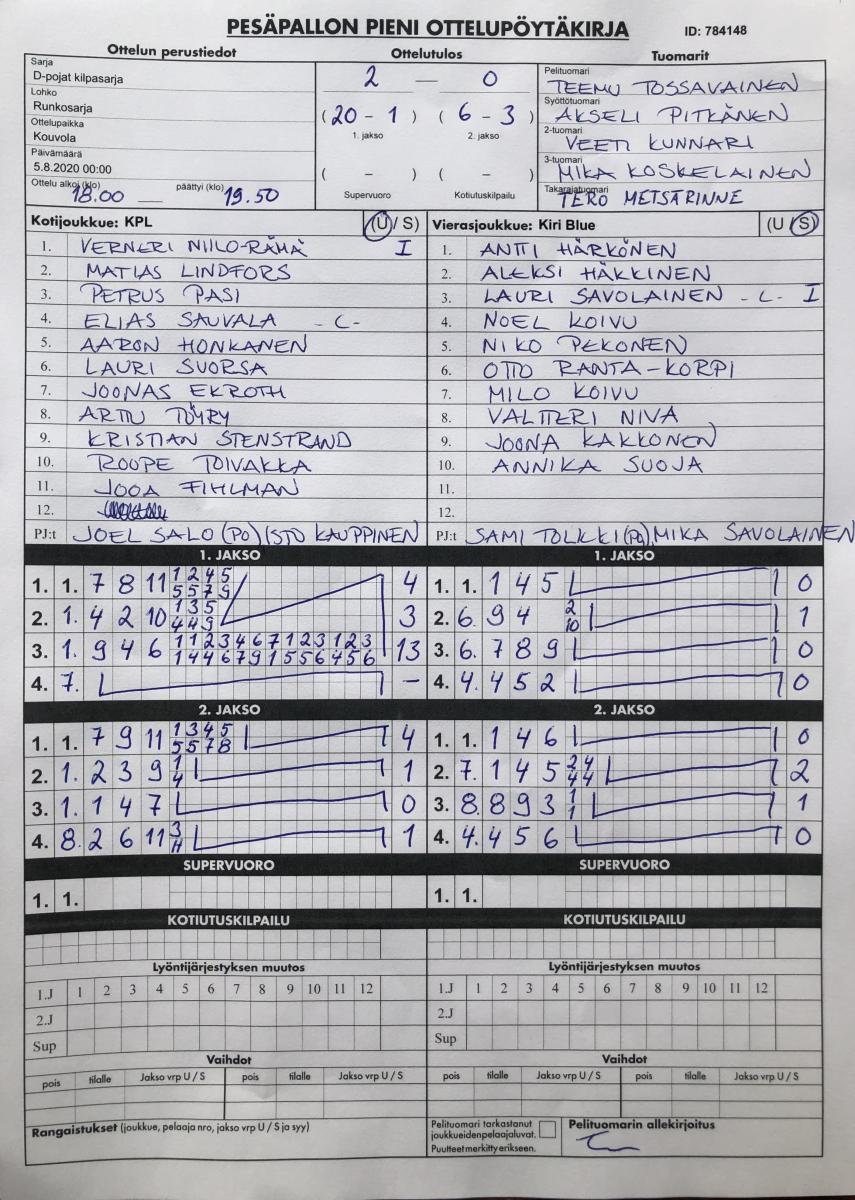 PESÄPALLON PIENI OTTELUPÖYTÄKIRJA ID: 784148
Ottelun perustiedot Ottelutulos Tuomarit
Sarja
D-pojat kilpasarja
Lohko
Runkosarja
Ottelupaikka
Kouvola
Päivämäärä
5.8.2020 00:00
Ottelu alkoi (klo) 18.00 päättyi (klo) 19.50
2 — 0
(20 - 1) (6 - 3)
1. jakso 2. jakso
( - ) ( - )
Supervuoro Kotiutuskilpailu
Pelituomari TEEMU TOSSAVAINEN
Syöttötuomari AKSELI PITKÄNEN
2-tuomari VEETI KUNNARI
3-tuomari MIKA KOSKELAINEN
Takarajatuomari TERO METSÄRINNE
Kotijoukkue: KPL (U / S)
1. VERNERI NIILO-RÄMÄ I
2. MATIAS LINDFORS
3. PETRUS PASI
4. ELIAS SAUVALA - C -
5. AARON HONKANEN
6. LAURI SUORSA
7. JOONAS EKROTH
8. ARTTU TÖYRY
9. KRISTIAN STENSTRAND
10. ROOPE TOIVAKKA
11. JOOA FIHLMAN
12.
PJ:t JOEL SALO (PO) ISTO KAUPPINEN
Vierasjoukkue: Kiri Blue (U / S)
1. ANTTI HÄRKÖNEN
2. ALEKSI HÄKKINEN
3. LAURI SAVOLAINEN - C - I
4. NOEL KOIVU
5. NIKO PEKONEN
6. OTTO RANTA-KORPI
7. MILO KOIVU
8. VALTTERI NIVA
9. JOONA KAKKONEN
10. ANNIKA SUOJA
11.
12.
PJ:t SAMI TOLKKI (PO), MIKA SAVOLAINEN
1. JAKSO
1. 1. 7 8 11 1 2 4 5 4
5 5 7 9
2. 1. 4 2 10 1 3 5 3
4 4 9
3. 1. 9 4 6 1 1 2 3 4 6 7 1 2 3 1 2 3 13
1 4 4 6 7 9 1 5 5 6 4 5 6
4. 7. –
1. JAKSO
1. 1. 1 4 5 0
2. 6. 9 4 2 1
10
3. 6. 7 8 9 0
4. 4. 4 5 2 0
2. JAKSO
1. 1. 7 9 11 1 3 4 5 4
5 5 7 8
2. 1. 2 3 9 1 1
4
3. 1. 1 4 7 0
4. 8. 2 6 11 3 1
11
2. JAKSO
1. 1. 1 4 6 0
2. 7. 1 4 5 2 4 2
4 4
3. 8. 8 9 3 1 1
1
4. 4. 4 5 6 0
SUPERVUORO SUPERVUORO
1. 1. 1. 1.
KOTIUTUSKILPAILU KOTIUTUSKILPAILU
Lyöntijärjestyksen muutos Lyöntijärjestyksen muutos
1.J 1 2 3 4 5 6 7 8 9 10 11 12 1.J 1 2 3 4 5 6 7 8 9 10 11 12
2.J 2.J
Sup Sup
Vaihdot Vaihdot
pois tilalle Jakso vrp U / S pois tilalle Jakso vrp U / S pois tilalle Jakso vrp U / S pois tilalle Jakso vrp U / S
Rangaistukset (joukkue, pelaaja nro, jakso vrp U / S ja syy)
Pelituomari tarkastanut
joukkueidenpelaajaluvat.
Puutteet merkitty erikseen.
Pelituomarin allekirjoitus